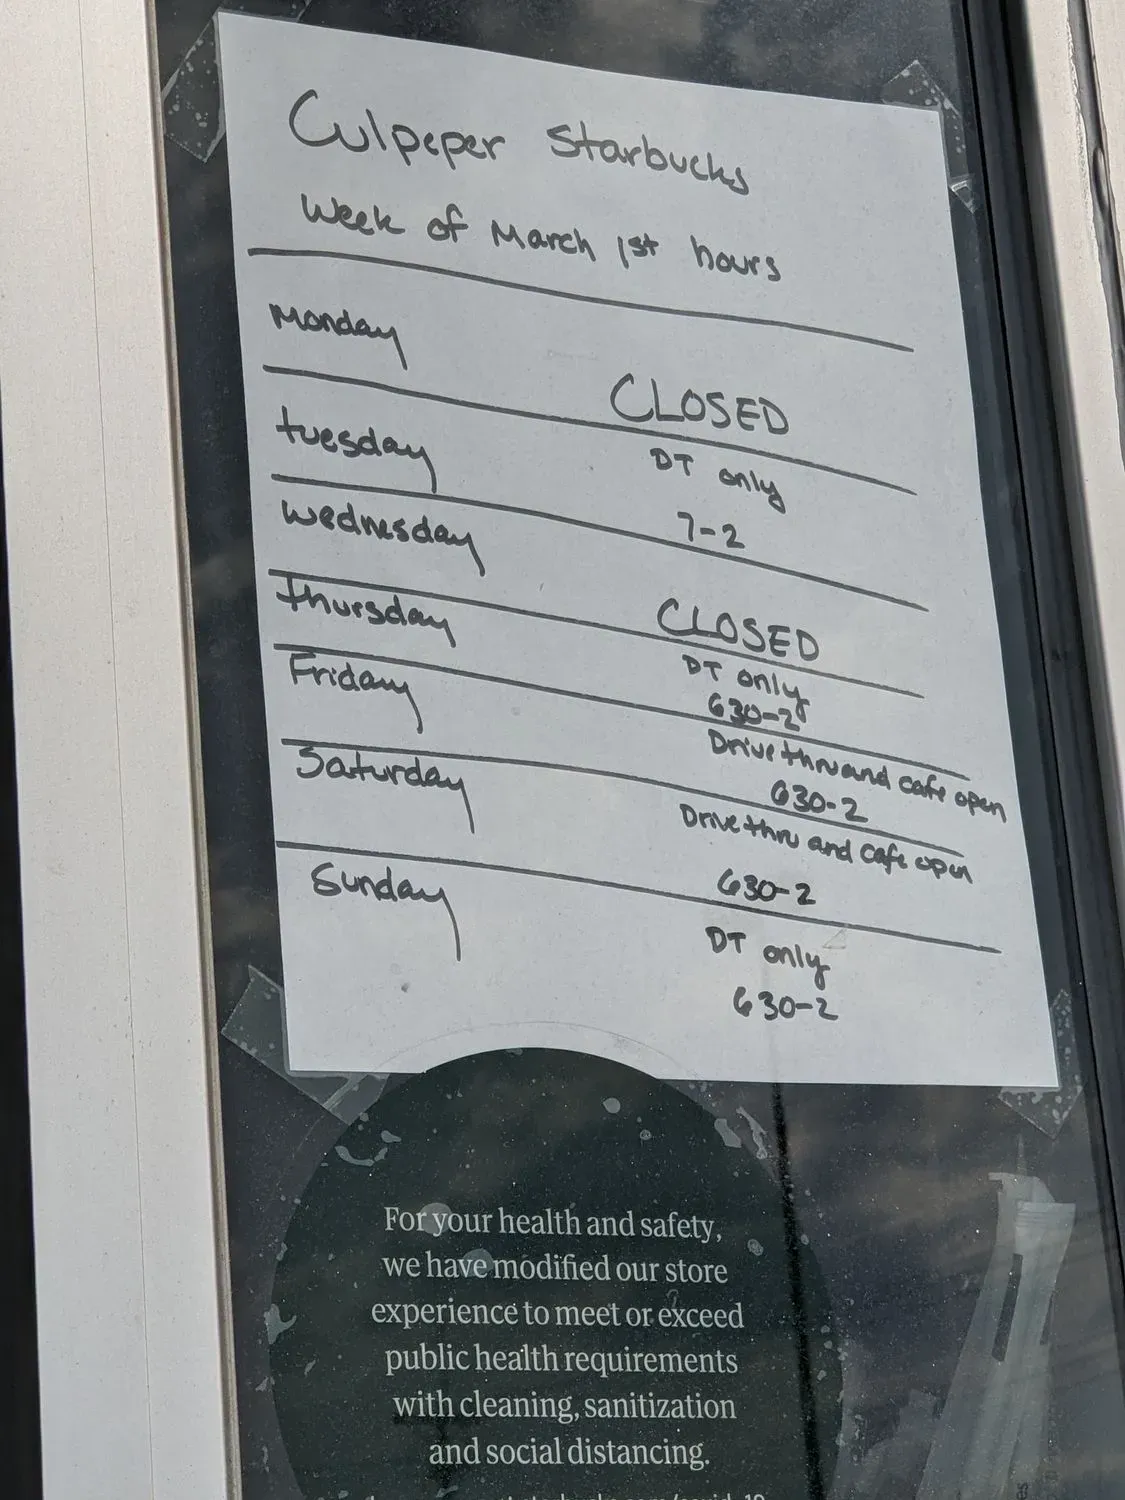 Culpeper Starbucks
Week of March 1st hours
Monday
CLOSED
tuesday
DT only
7-2
Wednesday
CLOSED
Thursday
DT only
630-2
Friday
Drive thru and cafe open
630-2
Saturday
Drive thru and cafe open
630-2
Sunday
DT only
630-2
For your health and safety,
we have modified our store
experience to meet or exceed
public health requirements
with cleaning, sanitization
and social distancing.